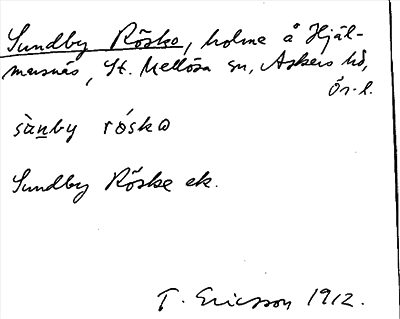 Sundby Röske, holme å Hjäl-
marsnäs, St. Mellösa sn, Askers hd,
Ör. l.
sàn̲by róskə
Sundby Röske ek.
T. Ericsson 1912.